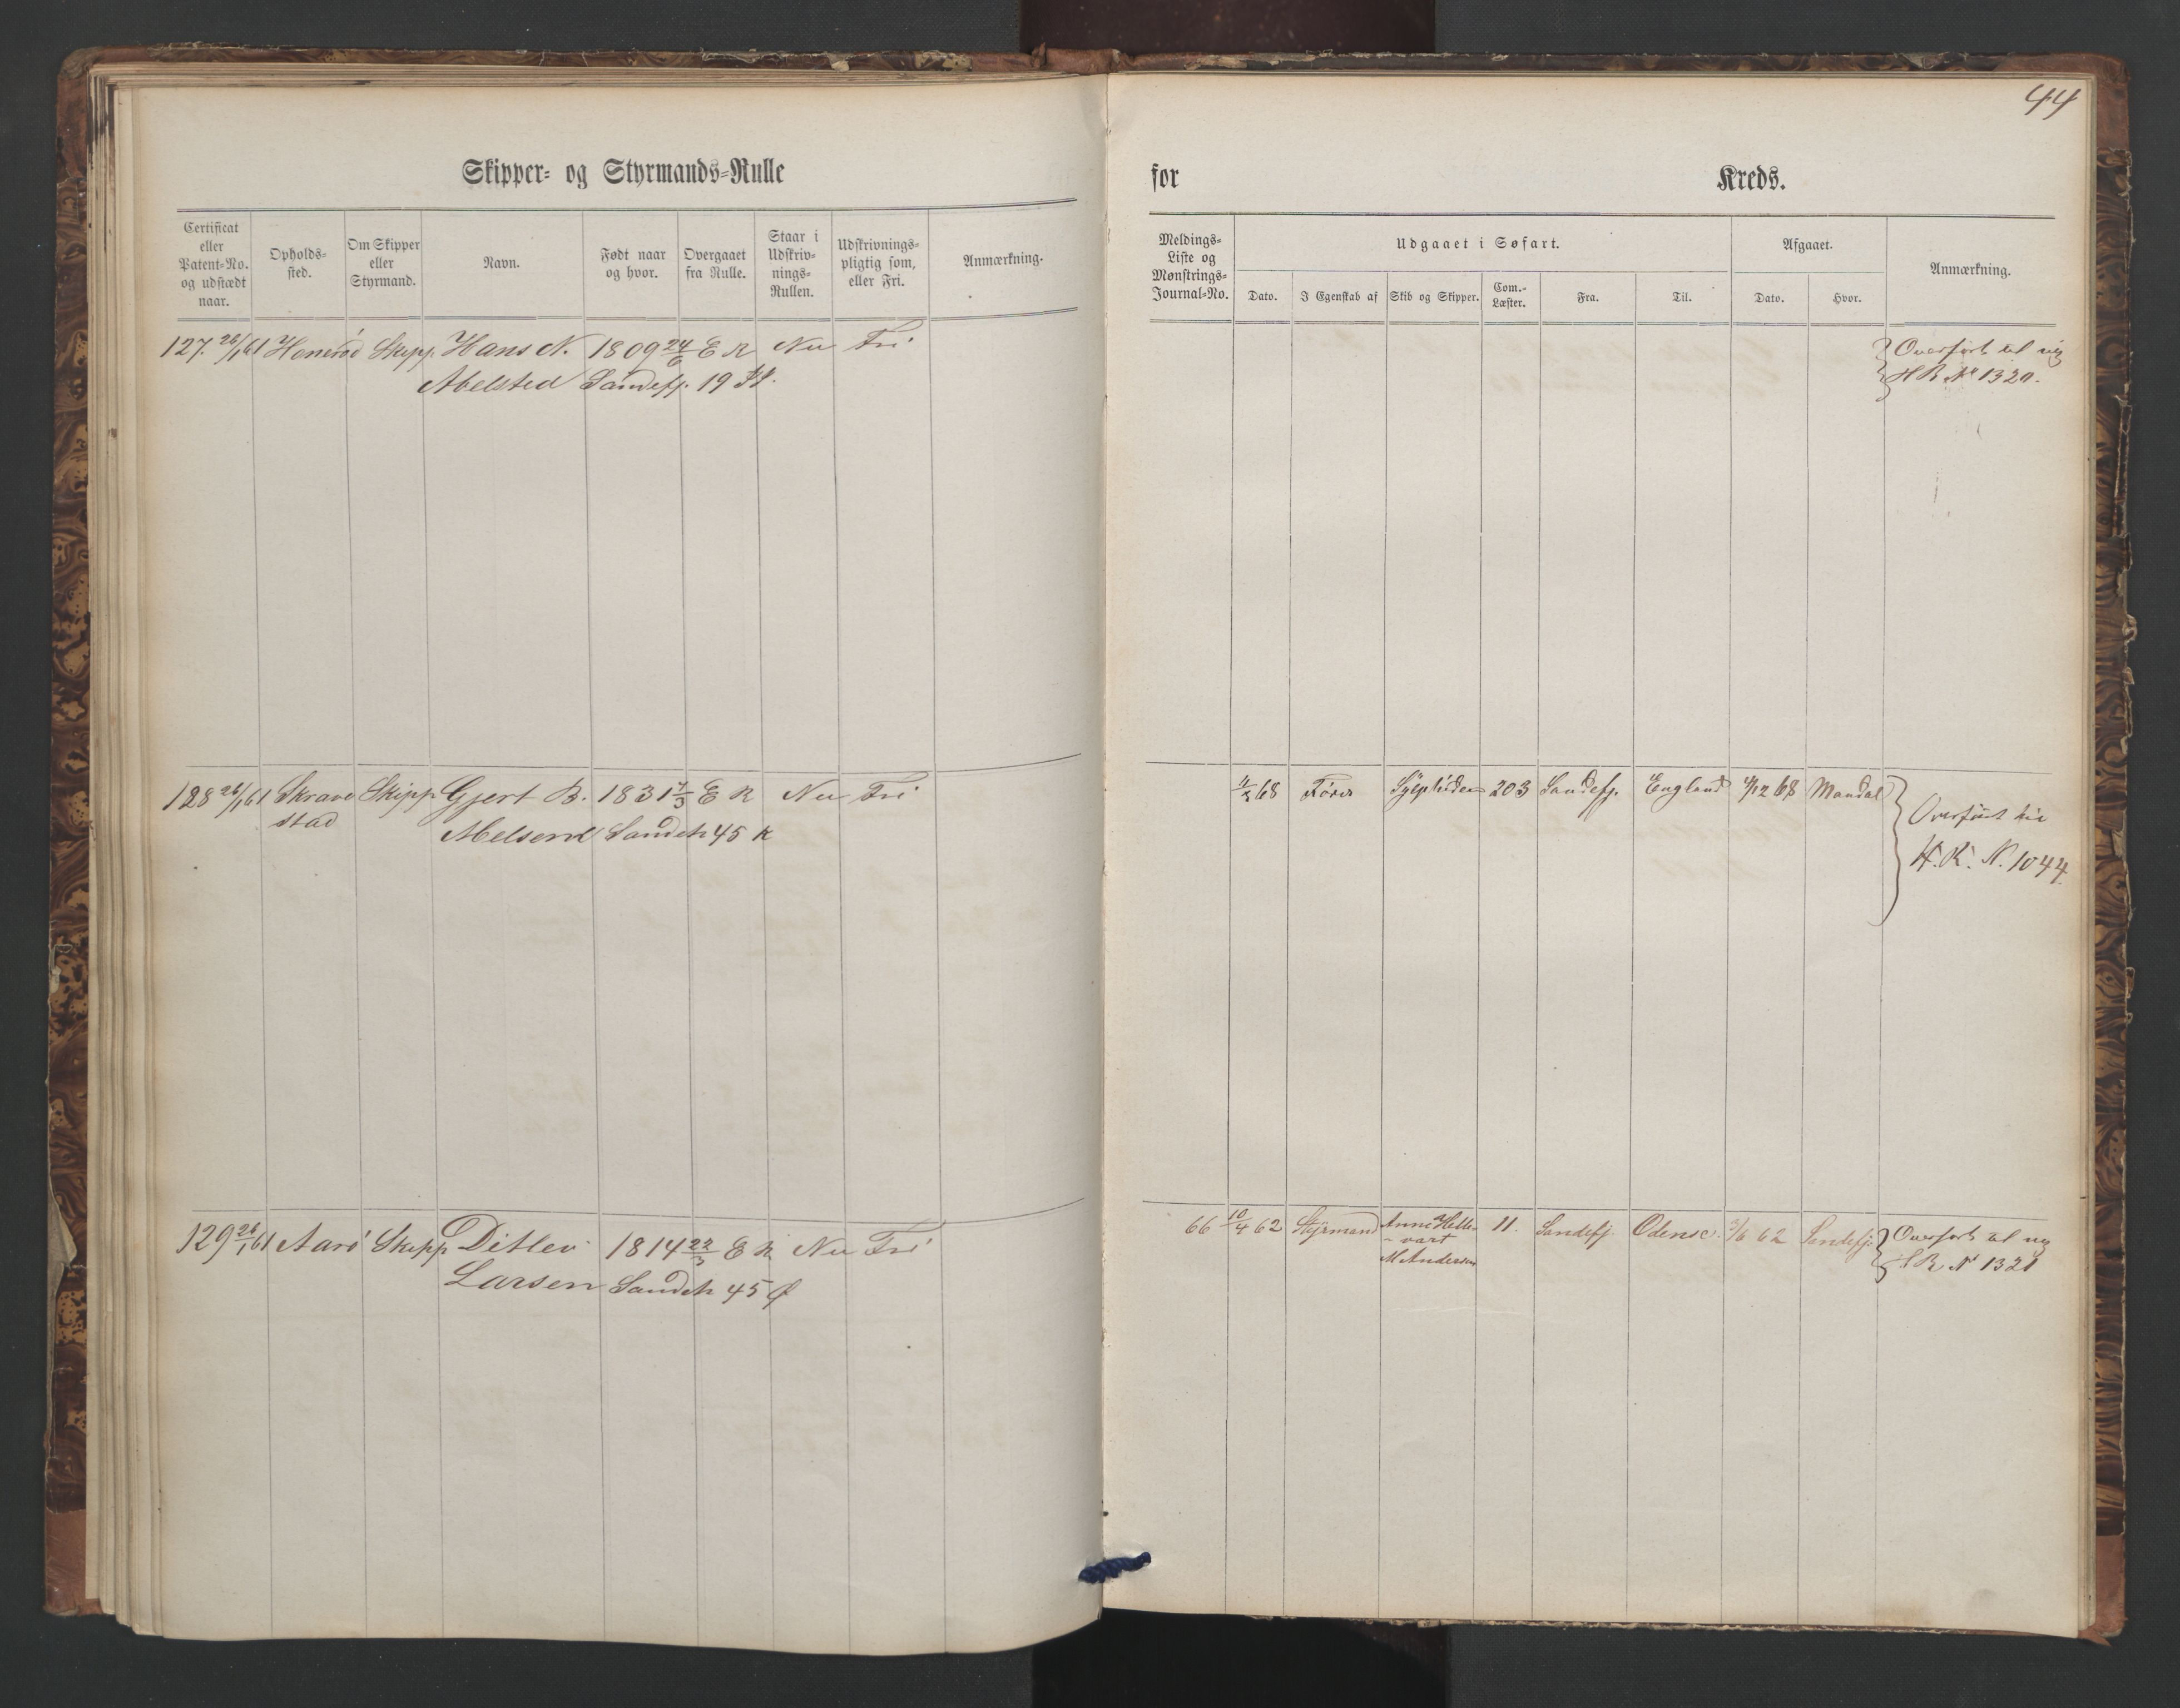 44
Skipper- og Styrmands-Rulle
for Kreds.
Certificat eller Patent-No. og udstædt naar.
Opholds-sted.
Om Skipper eller Styrmand.
Navn.
Født naar og hvor.
Overgaaet fra Rulle.
Staar i Udskriv-nings-Rullen.
Udskrivnings-pligtig som, eller Fri.
Anmærkning.
Meldings-Liste og Mønstrings-Journal-No.
Udgaaet i Søfart.
Dato.
I Egenskab af
Skib og Skipper.
Com.-Læster.
Fra.
Til.
Afgaaet.
Dato.
Hvor.
Anmærkning.
127. 26/1 61 Skipp. Hans N. 1809 24/6 E R Nu Fri
Abelsted Sandefj. 19
Overført til ny
HR No 1320.
128 26/1 61 Skrave Skipp Gjert B. 1831 E R Nu Fri
stad Abelsend Sandeh 45 K
68 Fører Sylphiden 203 Sandefj. England 68 Mandal
Overført til
H.R. N. 1044.
129 26/1 61 Aarø Skipp Ditlev 1814 22/3 E R Nu Fri
Larsen Sandeh 45
66 10/4 62 Styrmand Anne Helle- 11. Sandefj. Odense. 62 Sandefj.
vart
M Andersen
Overført til ny
HR No 1321